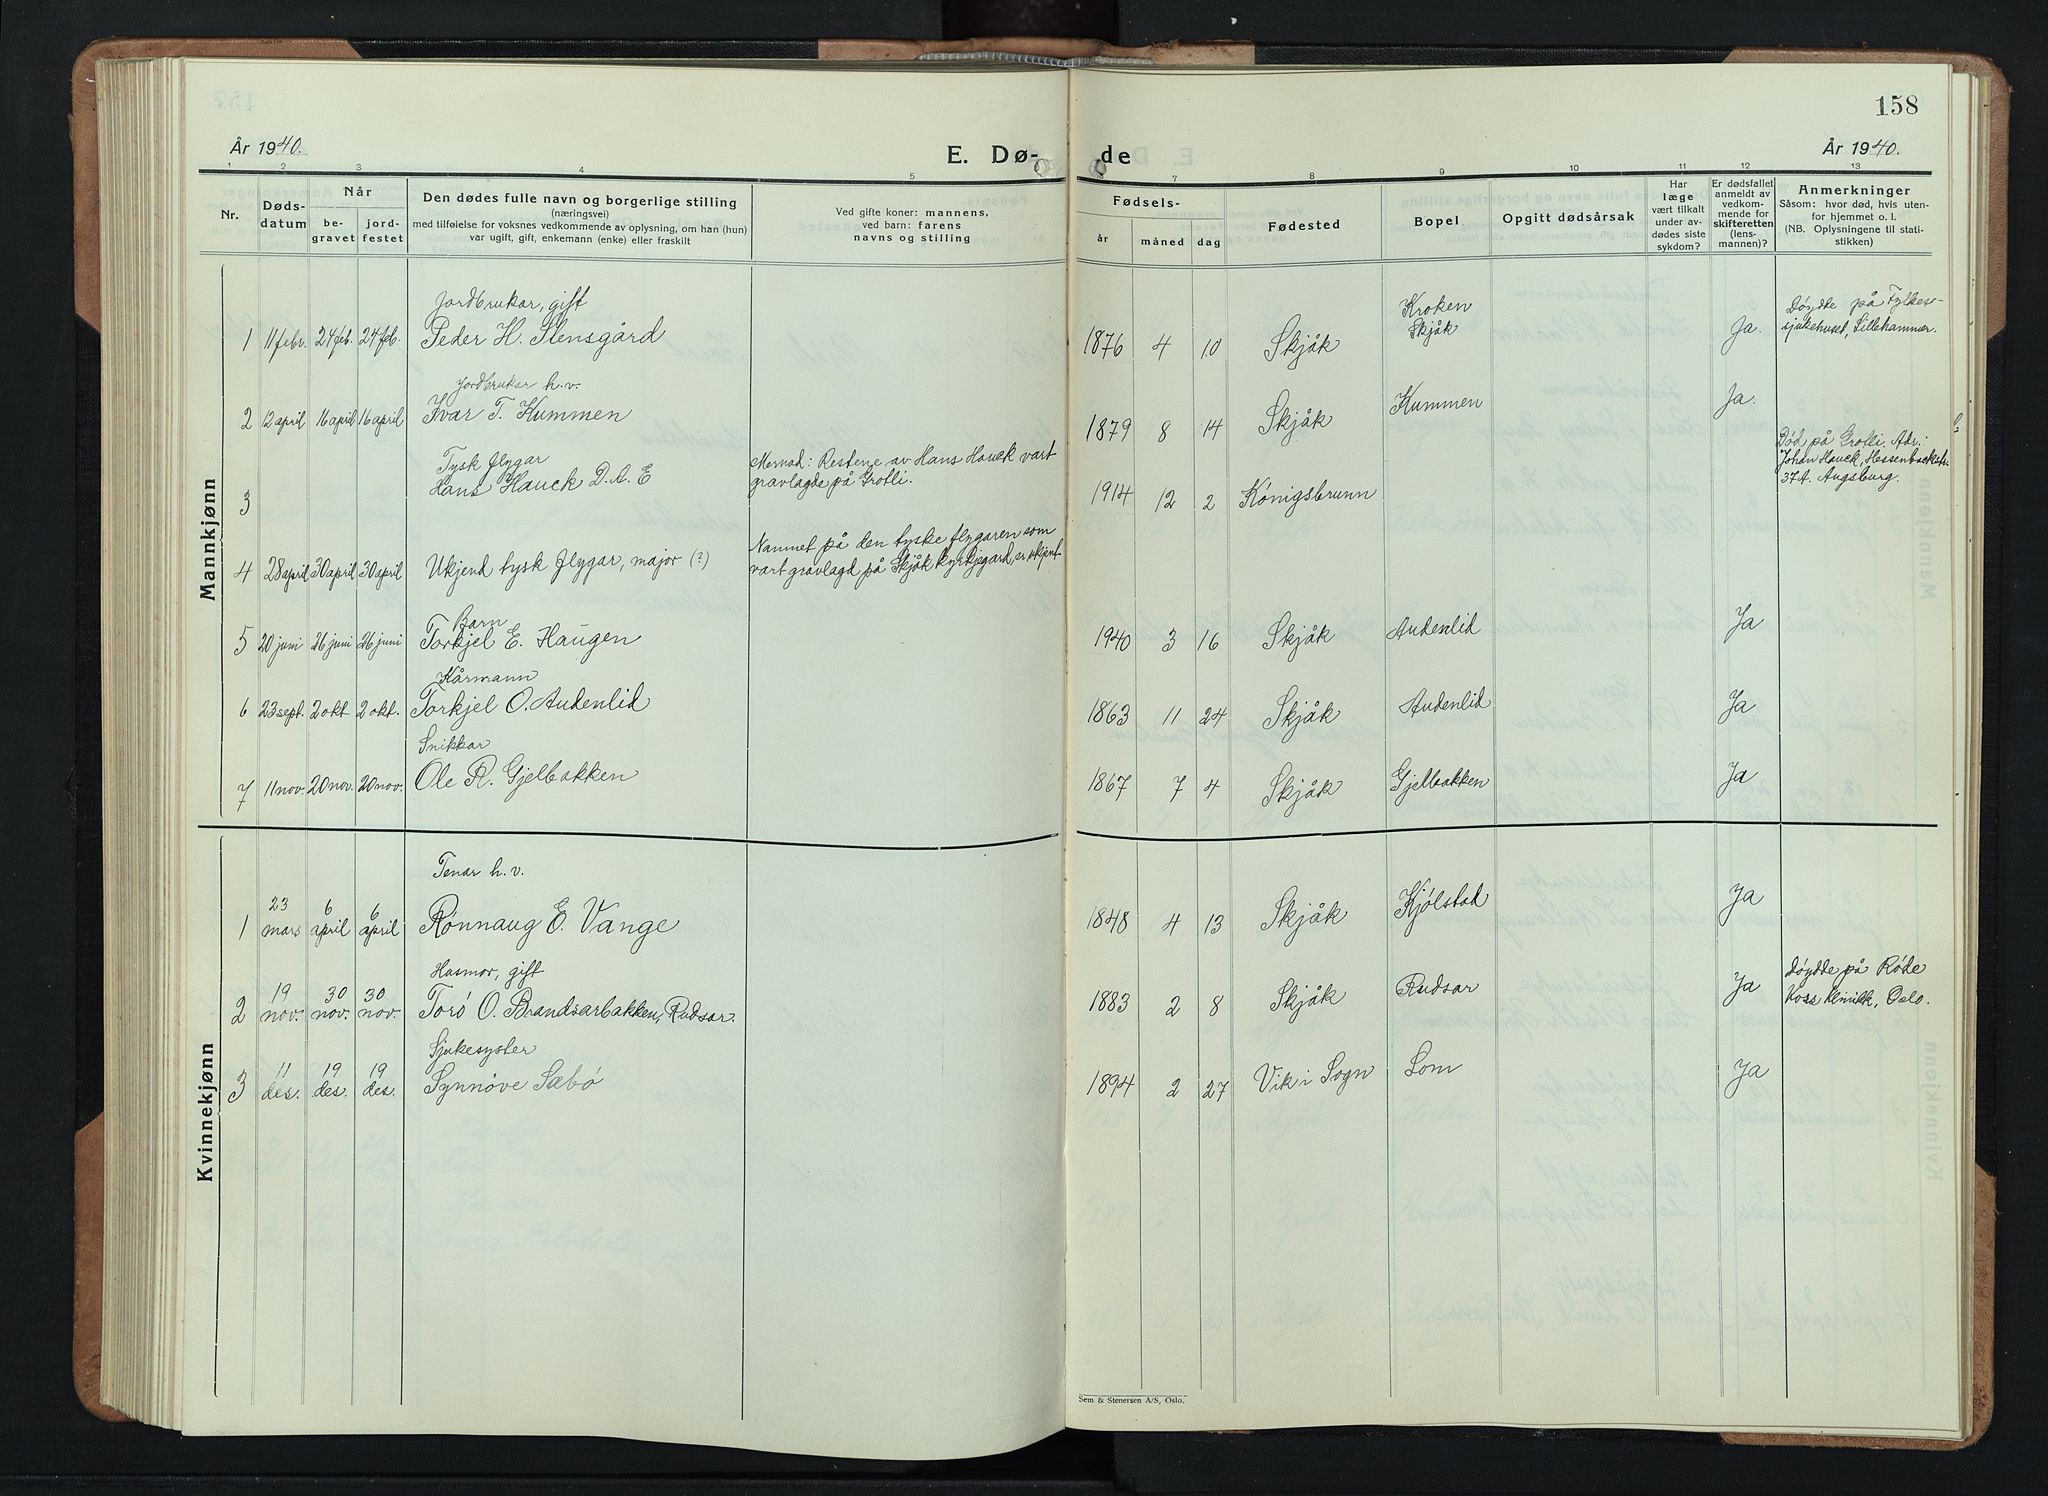 158
År 1940.
E. Dø-
de
År 1940.
1 2 3 4 5 7 8 9 10 11 12 13
Nr.
Døds-
datum
Når
be-
gravet
jord-
festet
Den dødes fulle navn og borgerlige stilling
(næringsvei)
med tilføielse for voksnes vedkommende av oplysning, om han (hun)
var ugift, gift, enkemann (enke) eller fraskilt
Ved gifte koner: mannens,
ved barn: farens
navns og stilling
Fødsels-
år måned dag
Fødested
Bopel
Opgitt dødsårsak
Har
læge
vært tilkalt
under av-
dødes siste
sykdom?
Er dødsfallet
anmeldt av
vedkom-
mende for
skifteretten
(lens-
mannen)?
Anmerkninger
Såsom: hvor død, hvis uten-
for hjemmet o. l.
(NB. Oplysningene til stati-
stikken)
Mannkjønn
Jordbrukar, gift
1 11 febr. 24 feb. 24 feb. Peder H. Stensgård 1876 4 10 Skjåk
Kroken
Skjåk
Ja.
Døydde på Fylkes-
sjukehuset, Lillehammer.
Jordbrukar h.v.
2 12 april 16 april 16 april Ivar T. Kummen 1879 8 14 Skjåk Kummen Ja.
Tysk flygar
3 Hans Hauck D.A.E
Mernad: Restene av Hans Hauck vart
gravlagde på Grotli.
1914 12 2 Königsbrunn
Død på Grotli. Adr.:
Johan Hauck, Hessenbackstr.
37A. Augsburg.
4 28 april 30 april 30 april Ukjend tysk flygar, major (?)
Namnet på den tyske flygaren som
vart gravlagd på Skjåk kyrkjegard, er ukjent.
Barn
5 20 juni 26 juni 26 juni Torkjel E. Haugen 1940 3 16 Skjåk Audenlid Ja
Kårmann
6 23 sept. 2 okt 2 okt. Torkjel O. Audenlid 1863 11 24 Skjåk Audenlid Ja
Snikkar
7 11 nov. 20 nov. 20 nov. Ole R. Gjelbakken 1867 7 4 Skjåk Gjelbakken Ja
Kvinnekjønn
Tenar h.v.
1 23 mars 6 april 6 april Rønnaug E. Vange 1848 4 13 Skjåk Kjölstad Ja
Husmor, gift
2 19 nov. 30 nov. 30 nov. Torö O. Brandsarbakken, Rudsar. 1883 2 8 Skjåk Rudsar Ja
Döydde på Röde
Koss klinikk, Oslo.
Sjukesyster
3 11 des. 19 des. 19 des. Synnöve Sæbö 1894 2 27 Vik i Sogn Lom Ja
Sem & Stenersen A/S, Oslo.